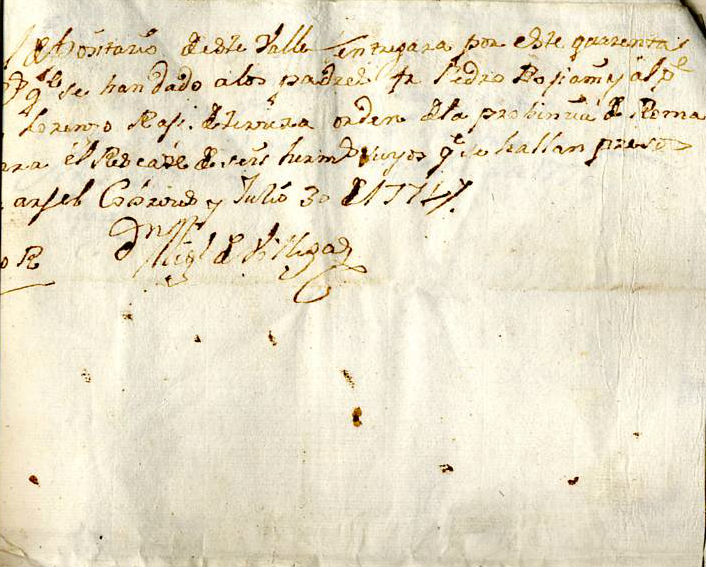 Depositario deste Valle entregara por este quarenta
Rs qe se han dado a los padres fr Pedro y al pe
Lorenzo Rasi. de tercera orden de la probincia de Roma
ara el Rescate de seis herms suyos qe se hallan presos
Argel y Julio 30 de 1774
Dn Migl de Villegas
o R